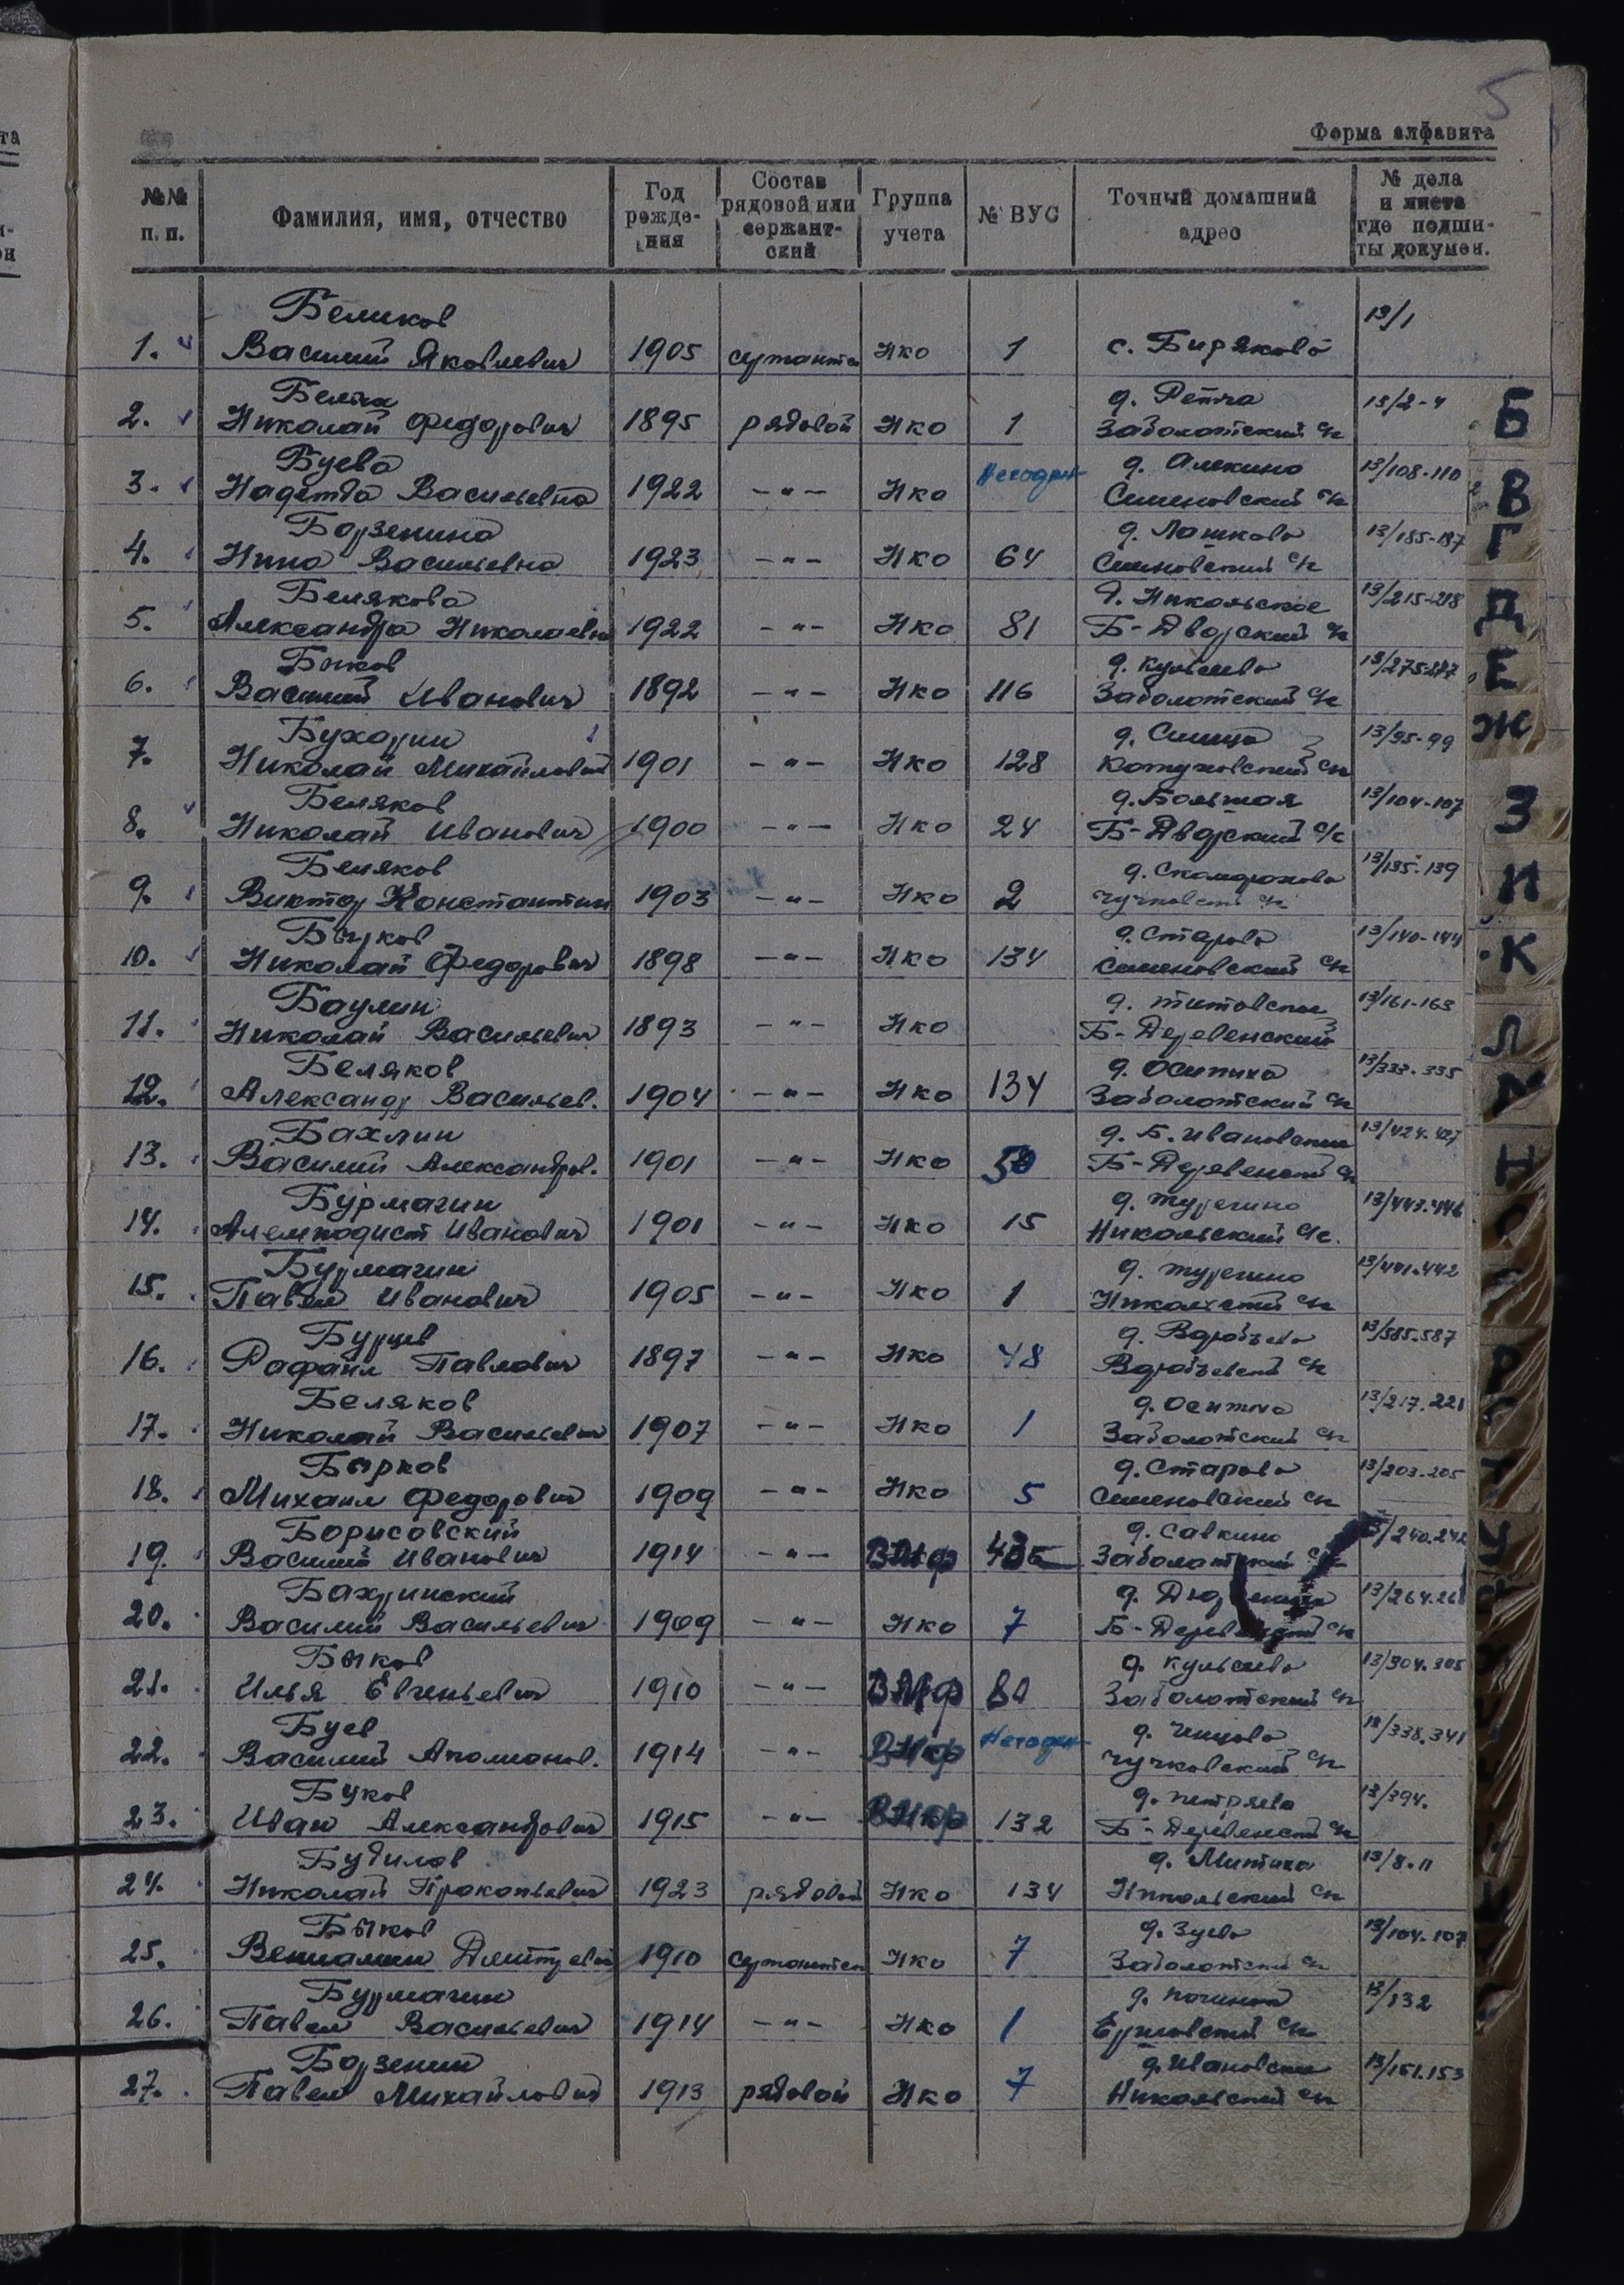 5
Форма алфавита
№№ п. п. Фамилия, имя, отчество Год рожде- ния Состав рядовой или сержант- ский Группа учета № ВУС Точный домашний адрес № дела и листа где подши- ты докумен.
Беликов 13/1
1. Василий Яковлевич 1905 Нко 1 с. Биряково
д. 13/2-4
2. Николай Федорович 1895 рядовой Нко 1 Заболотский с/с
Буева Негоден д. Алекино 13/108-110
3. Надежда Васильевна 1922 -"- Нко Семеновский с/с
Борзенина д. Лашково 13/185-187
4. Нина Васильевна 1923 -"- Нко 64 Семеновский с/с
Белякова д. Никольское 13/215-218
5. Александра Николаевна 1922 -"- Нко 81 Б-Дворский с/с
Быков д. Кульсеево
6. Василий Иванович 1892 -"- Нко 116 Заболотский с/с
Бухарин д. 13/95-99
7. Николай Михайлович 1901 -"- Нко 128 с/с
Беляков д. Большая 13/104-107
8. Николай Иванович 1900 -"- Нко 24 Б-Дворский с/с
Беляков д. Скоморохово 13/135-139
9. Виктор Константин 1903 -"- Нко 2 Чучковский с/с
Бырков д. Старово 13/140-144
10. Николай Федорович 1898 -"- Нко 134 Семеновский с/с
Баулин д. Титовское 13/161-163
11. Николай Васильевич 1893 -"- Нко Б-Деревенский
Беляков д. Осипиха 13/333-335
12. Александр Васильев. 1904 -"- Нко 134 Заболотский с/с
Бахлин д. Б. Ивановская 13/424-427
13. Василий Александров. 1901 -"- Нко Б-Деревенский с/с
Бурмагин д. Турегино 13/443-446
14. Иванович 1901 -"- Нко 15 Никольский с/с
Бурмагин д. Турегино 13/441-442
15. Павел Иванович 1905 -"- Нко 1 Никольский с/с
Бурцев д. Воробьево 13/585-587
16. Рафаил Павлович 1897 -"- Нко 48 Воробьевский с/с
Беляков д. Осипиха 13/217-221
17. Николай Васильевич 1907 -"- Нко 1 Заболотский с/с
Бырков д. Старово 13/203-205
18. Михаил Федорович 1909 -"- Нко 5 Семеновский с/с
Борисовский д. Савкино 13/240.242
19. Василий Иванович 1914 -"- ВМФ Заболотский с/с
Бахринский д.
20. Василий Васильевич 1909 -"- Нко 7 Б-Деревенский с/с
Быков д. Кульсеево 13/304.305
21. Илья Евгеньевич 1910 -"- ВМФ Заболотский с/с
Буев Негоден д. 13/338.341
22. Василий Аполионов. 1914 -"- ВМФ Чучковский с/с
Буков д. Петряево 13/394.
23. Иван Александрович 1915 -"- ВМФ 132 Б-Деревенский с/с
Будилов д. Митиха 13/8-11
24. Николай Прокопьевич 1923 рядовой Нко 134 Никольский с/с
Быков д. Зуево 13/104-107
25. Вениамин Дмитриевич 1910 Нко 7 Заболотский с/с
Бурмагин д. Починок 13/132
26. Павел Васильевич 1914 -"- Нко 1 с/с
Борзенин д. Ивановская 13/151.153
27. Павел Михайлович 1913 рядовой Нко 7 Никольский с/с
Б
В
Г
Д
Е
Ж
З
И
К
Л